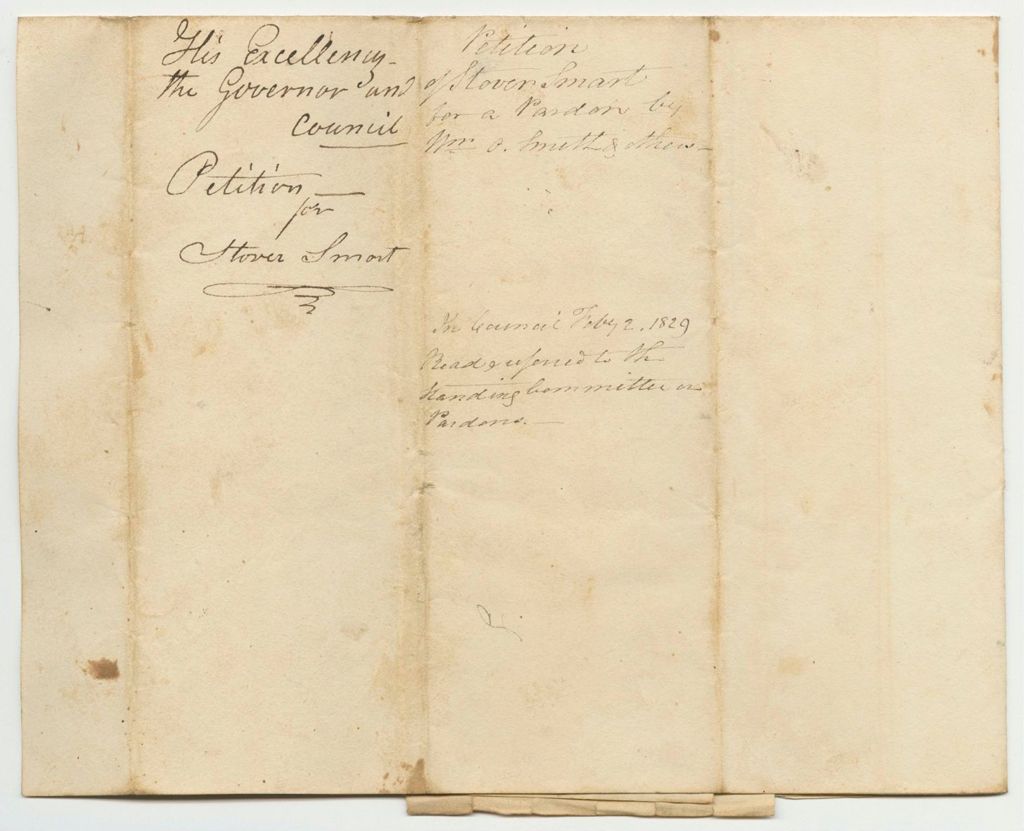 His Excellency
the Governor and
Council
Petition
for
Stover Smart
Petition
of Stover Smart
for a Pardon by
Wm O. Smith & others
In Council Feby 2, 1829
Read & referred to the
Standing Committee on
Pardons.